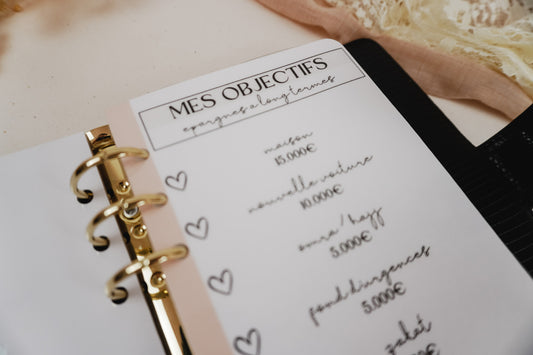 MES OBJECTIFS
epargnes a long termes
maison
15.000€
nouvelle voiture
10.000€
omra / hajj
5.000€
fond d'urgences
5.000€
zakat